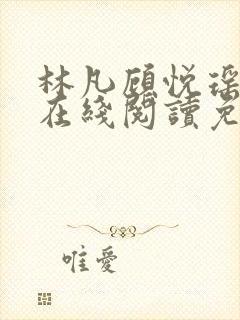 林凡顾悦瑶
在綫閱讀免
唯愛